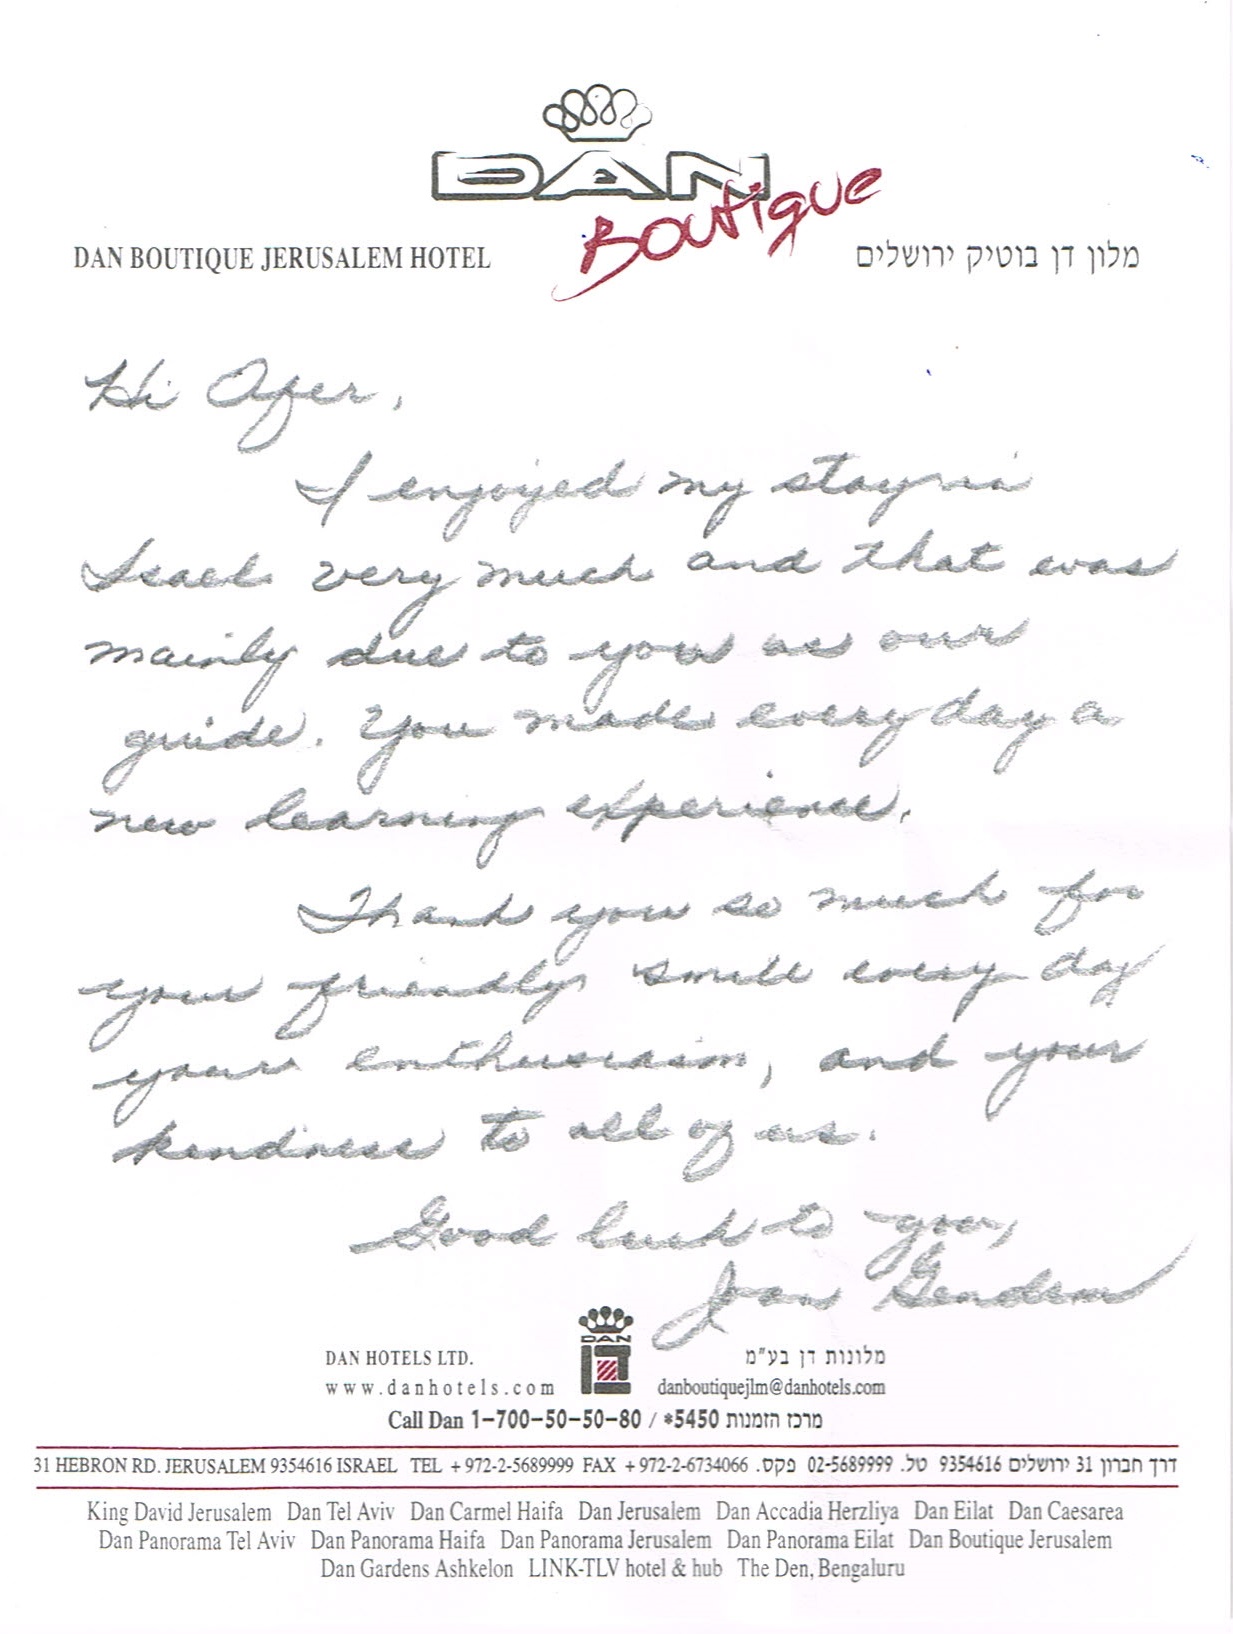 DAN
Boutique
DAN BOUTIQUE JERUSALEM HOTEL
מלון דן בוטיק ירושלים
Hi Ofer,
I enjoyed my stay in
Israel very much and that was
mainly due to you as our
guide. You made every day a
new learning experience.
Thank you so much for
your friendly smile every day
your enthusiasm, and your
kindness to all of us.
Good luck to you,
Jan
DAN
DAN HOTELS LTD.
מלונות דן בע"מ
www.danhotels.com
danboutiquejlm@danhotels.com
Call Dan 1-700-50-50-80 / *5450 מרכז הזמנות
31 HEBRON RD. JERUSALEM 9354616 ISRAEL TEL +972-2-5689999 FAX +972-2-6734066 דרך חברון 31 ירושלים 9354616 טל. 02-5689999 פקס.
King David Jerusalem Dan Tel Aviv Dan Carmel Haifa Dan Jerusalem Dan Accadia Herzliya Dan Eilat Dan Caesarea
Dan Panorama Tel Aviv Dan Panorama Haifa Dan Panorama Jerusalem Dan Panorama Eilat Dan Boutique Jerusalem
Dan Gardens Ashkelon LINK-TLV hotel & hub The Den, Bengaluru